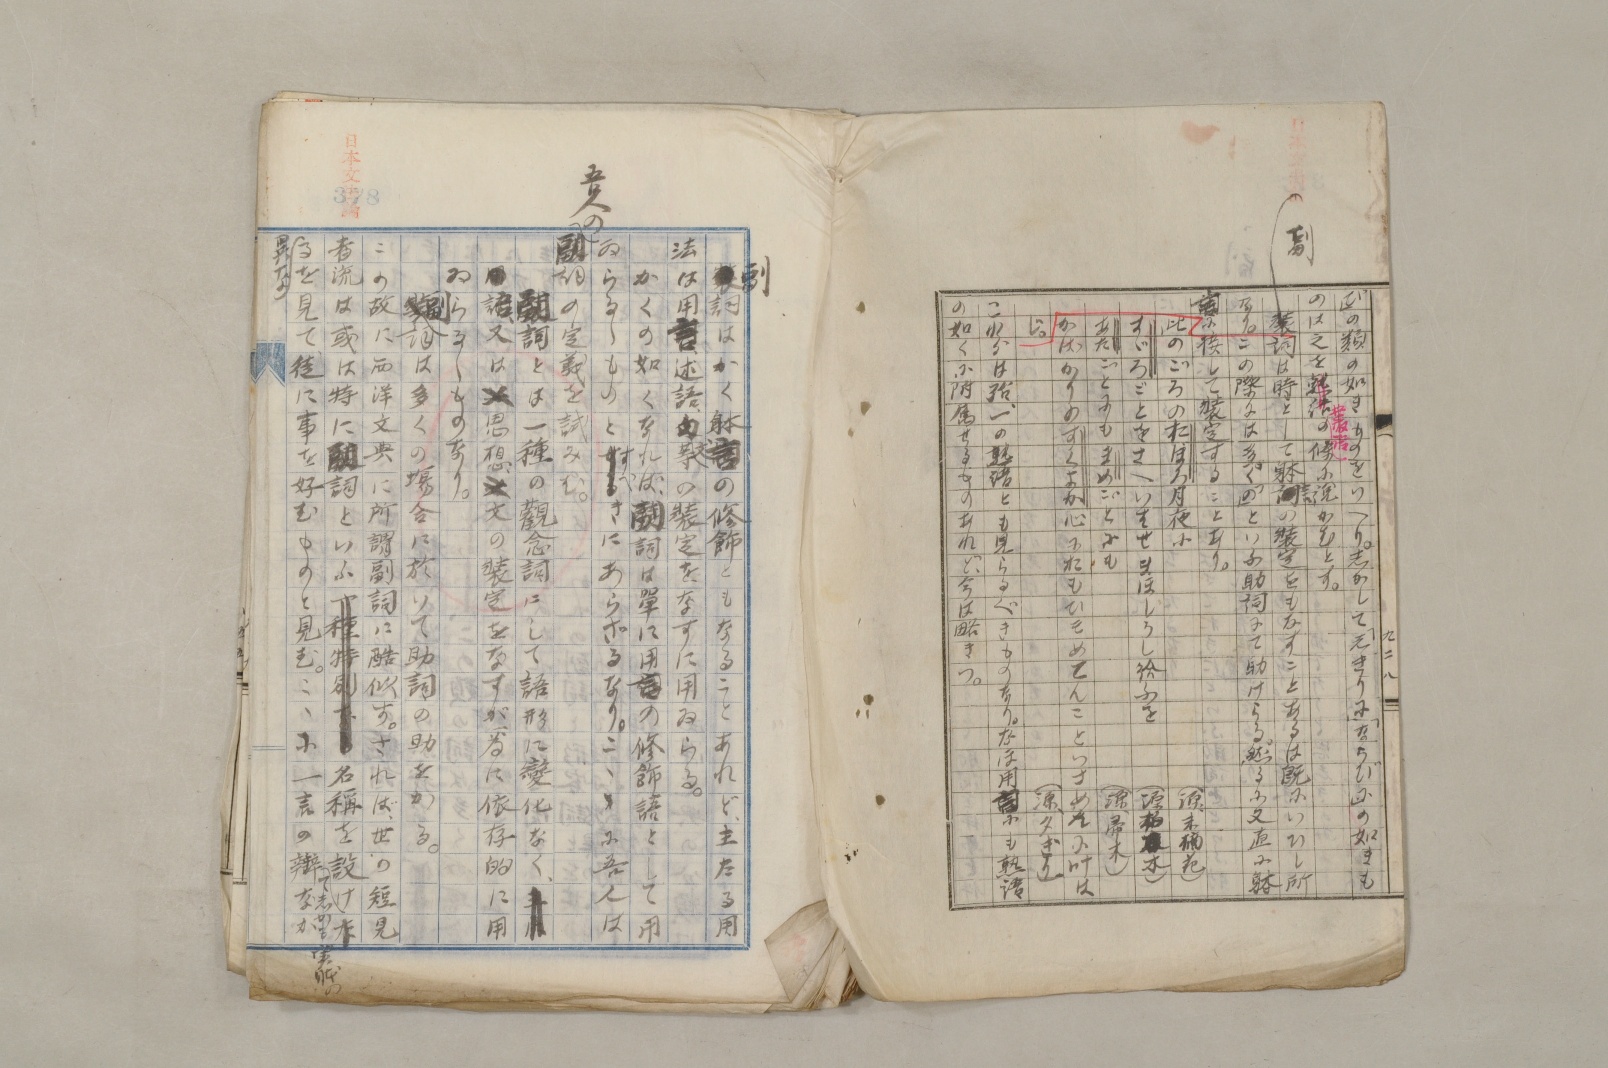 此の類の如きものをいへり。志かして「えきりに」「たちびに」の如きも
のは之を熟語の條に説かむとす。
副詞は時として躰言の装定をもなすことあるは既にいひし所
なり。この際には多く「の」といふ助詞にて助けらる。然るに又直に躰
言に接して装定することあり。
此のごろのおぼろ月夜に
すゞろごとをさへいはせまほしうし給ふを
あだごとにもまめごとにも
かばかりのすくよか心におもひそめてんこといさめむに叶は
じ。
これらは殆一の熟語とも見らるべきものなり。なほ用言にも熟語
の如くに附属せるものあれど、今は略きつ。
九二八
副
叢語
日本文法論
378
副詞はかく躰言の修飾ともなることあれど、主たる用
法は用言、述語、句等の装定をなすに用ゐらる。
かくの如くなれば、副詞は單に用言の修飾語として用
ゐらるゝものとすべきにあらざるなり。こゝに吾人は
吾人の
副詞の定義を試みむ。
副詞とは一種の觀念詞にして語形に變化なく、
用語又は思想、文の装定をなすが爲に依存的に用
ゐらるゝものなり。
副詞は多くの塲合に於いて助詞の助をかる。
この故に西洋文典に所謂副詞に酷似す。されば、世の短見
者流は或は特に副詞といふ名稱を設け
るを見て徒に事を好むものと見む。こゝに一言の辯なか
異なる